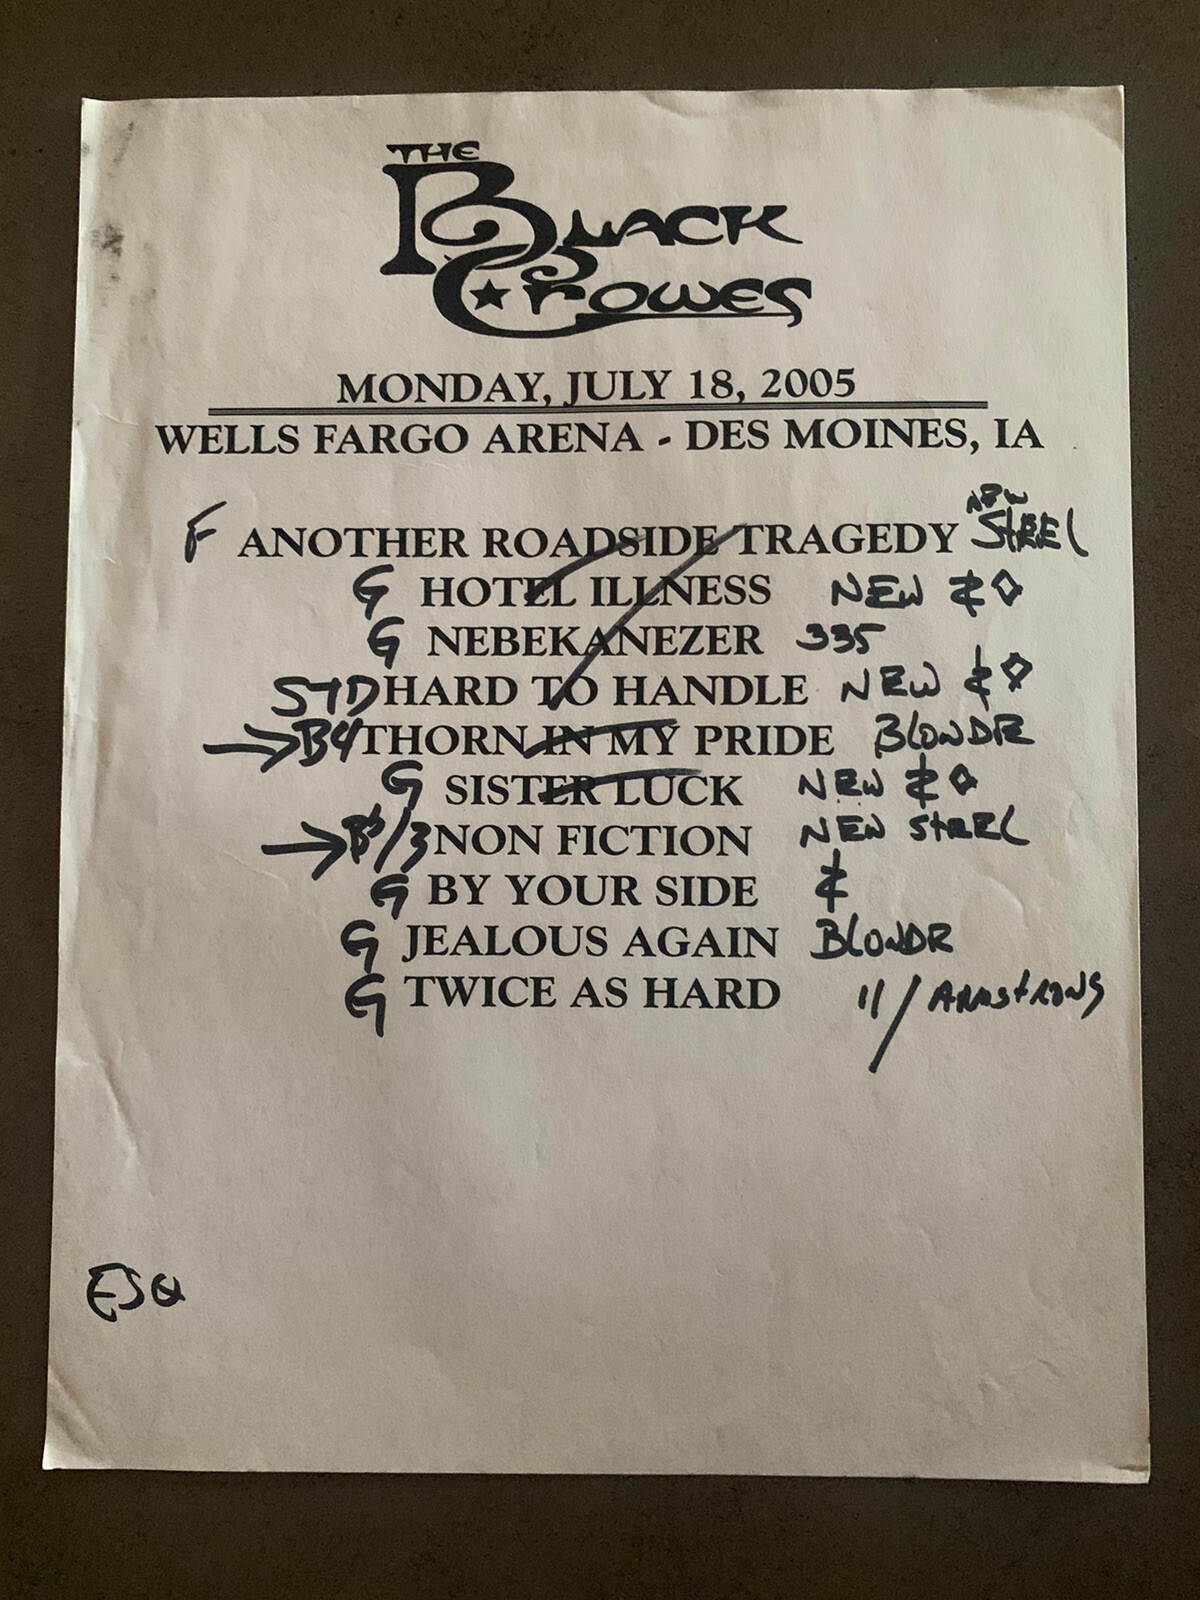 THE
BLACK
CROWES
MONDAY, JULY 18, 2005
WELLS FARGO ARENA - DES MOINES, IA
F ANOTHER ROADSIDE TRAGEDY NEW STEEL
G HOTEL ILLNESS NEW ◇
G NEBEKANEZER 335
STD HARD TO HANDLE NEW ◇
→ B4 THORN IN MY PRIDE BLONDE
G SISTER LUCK NEW ◇
→ /3 NON FICTION NEW STEEL
G BY YOUR SIDE
G JEALOUS AGAIN BLONDE
G TWICE AS HARD 11 / ARMSTRONG
ESQ